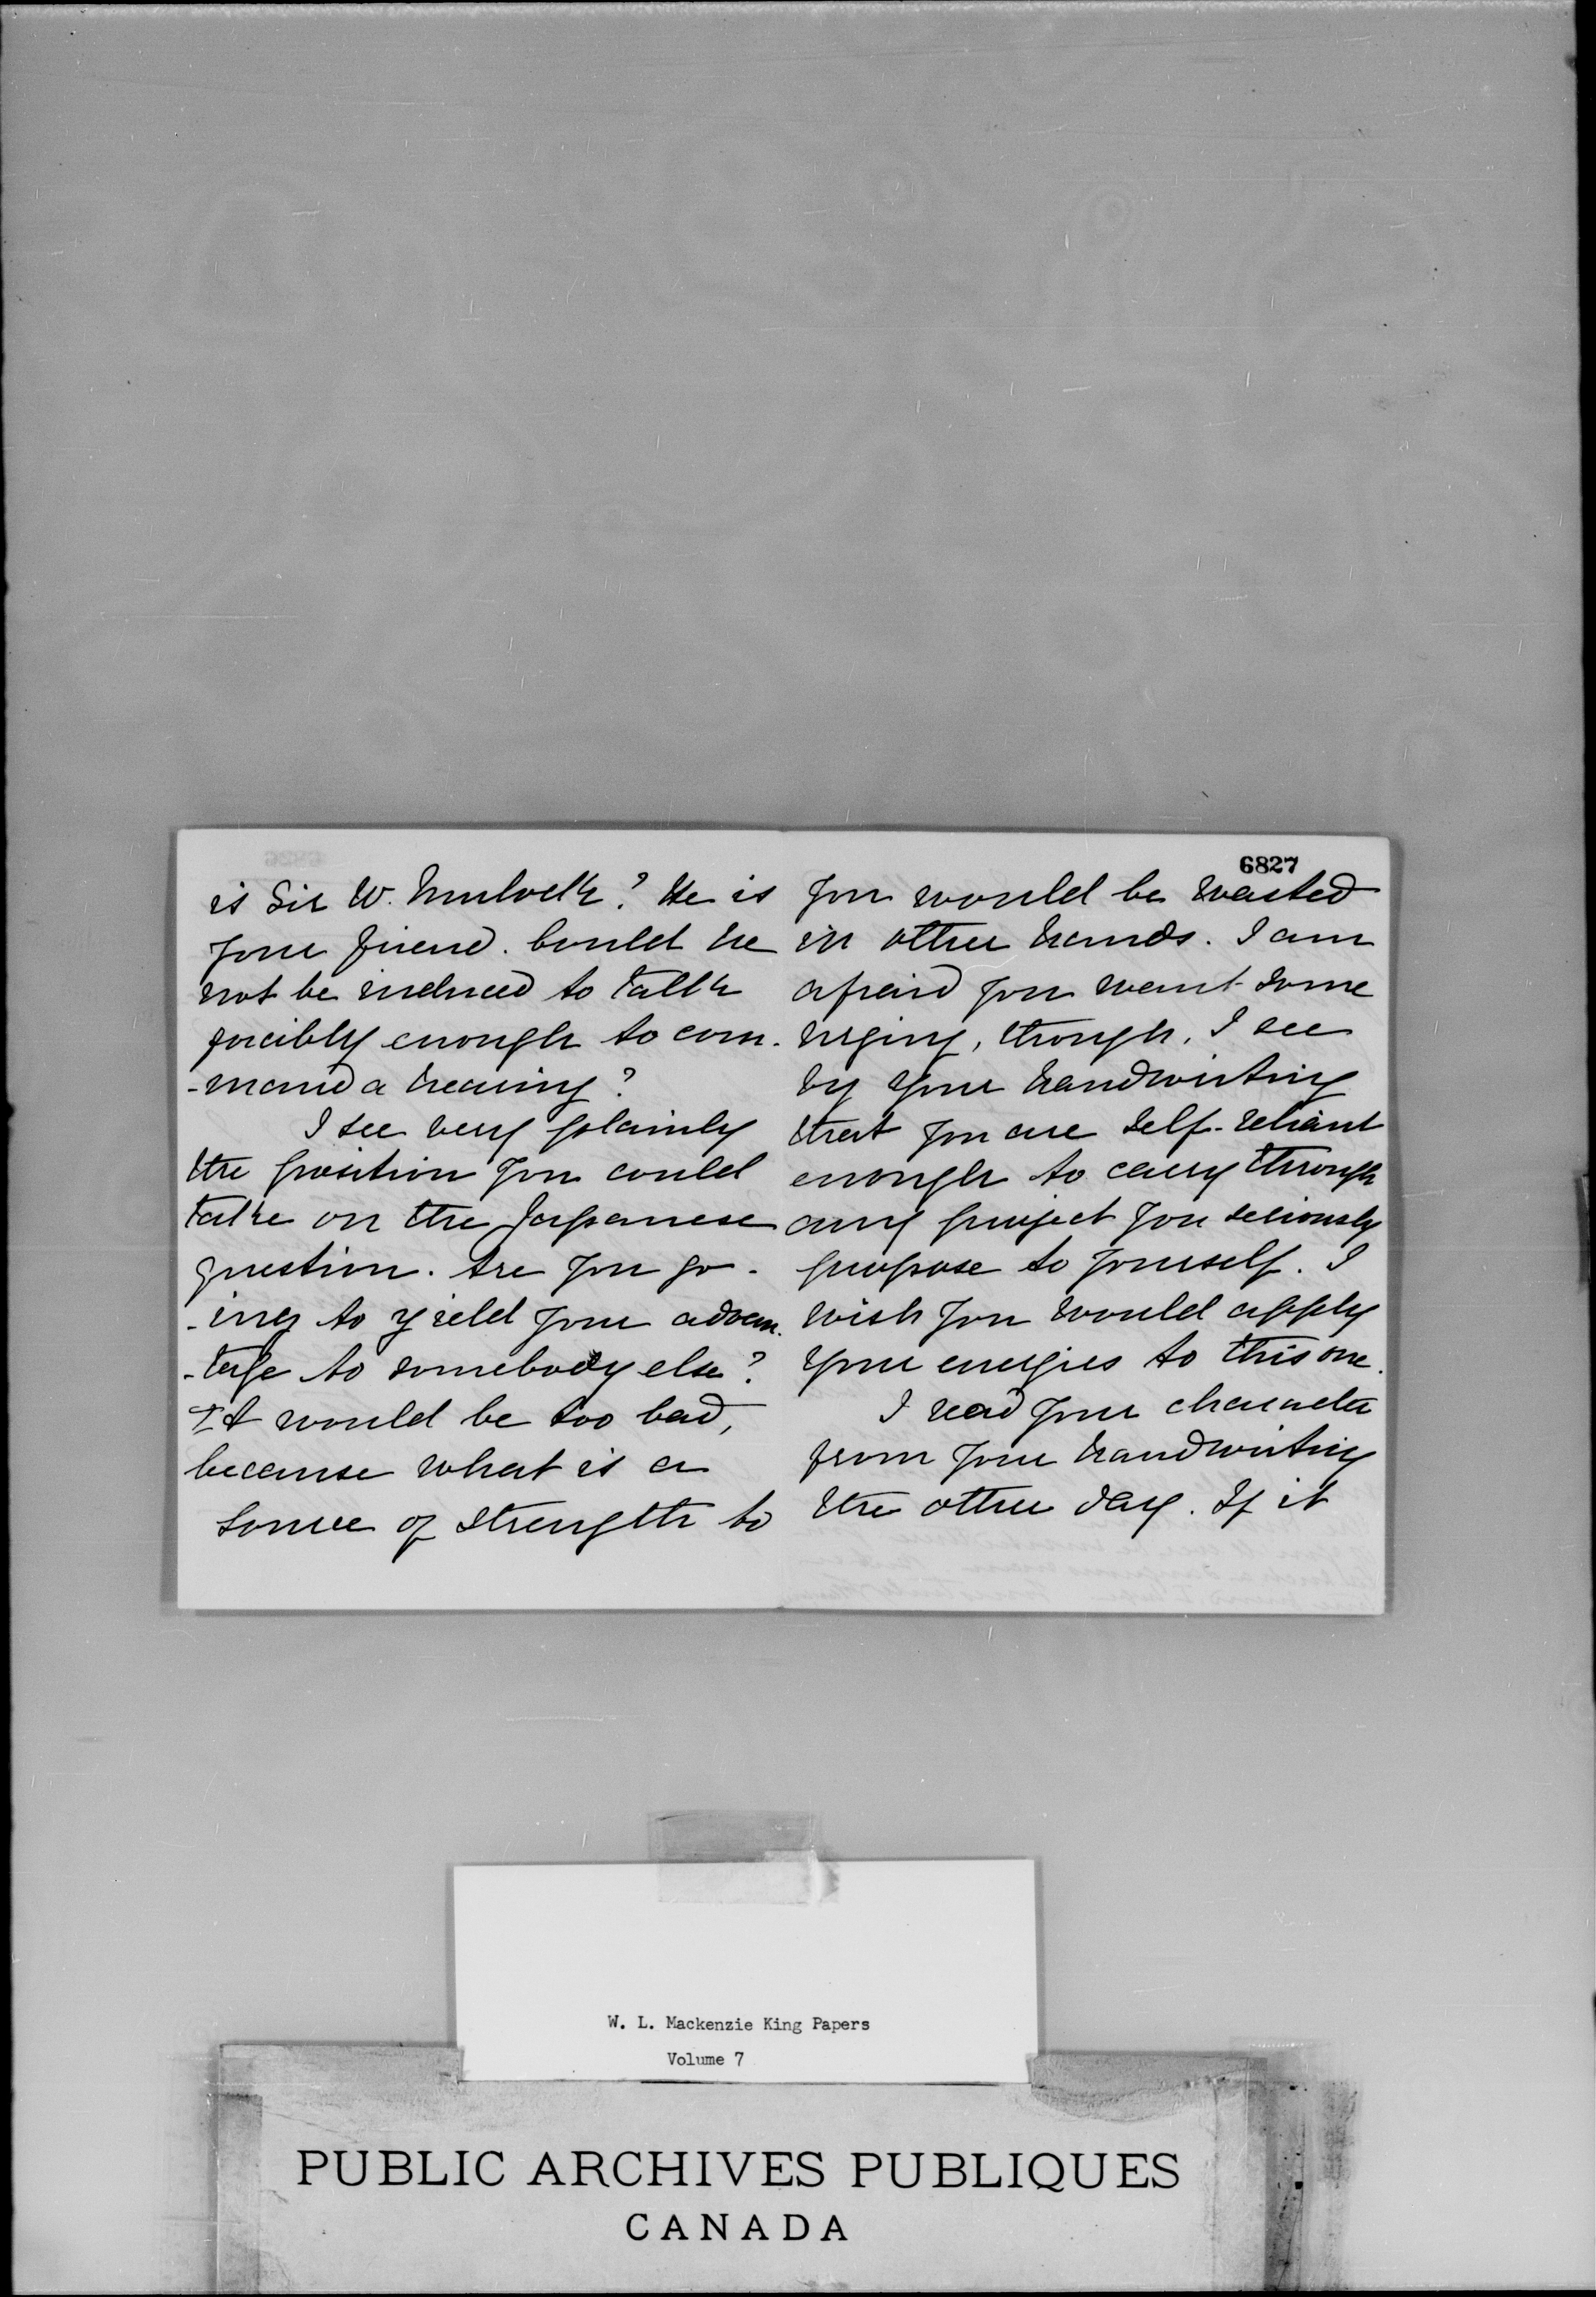 is Sir W. Mulock? He is
your friend. Could he
not be induced to talk
forcibly enough to com-
-mand a hearing?
I see very plainly
the position you could
take on the Japanese
question. Are you go-
-ing to yield your advan-
-tage to somebody else?
It would be too bad,
because what is a
source of strength to
6827
you would be wasted
in other hands. I am
afraid you want some
urging, though. I see
by your handwriting
that you are self-reliant
enough to carry through
any project you seriously
propose to yourself. I
wish you would apply
your energies to this one.
I read your character
from your handwriting
the other day. If it
W. L. Mackenzie King Papers
Volume 7
PUBLIC ARCHIVES PUBLIQUES
CANADA